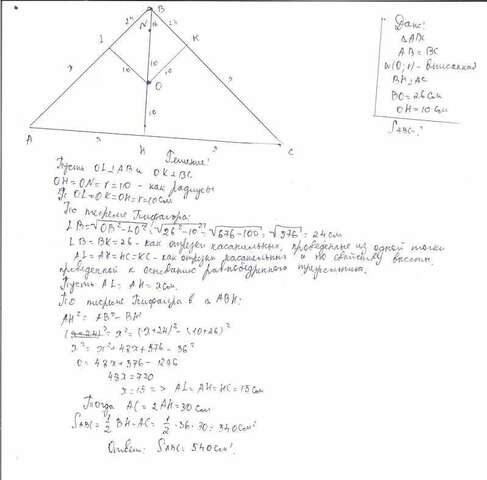 B
24
24
N
16
L
K
x
10
10
10
O
10
x
A
x
H
x
C
Дано:
△ABC
AB = BC
ω(O; r) - вписанная
BH⊥AC
BO = 26 см
OH = 10 см
SABC-?
Решение:
Пусть OL⊥AB и OK⊥BC.
OH = ON = r = 10 - как радиусы
OL = OK = OH = r = 10 см
По теореме Пифагора:
LB = √OB² - LO² = √26² - 10² = √676 - 100 = √576 = 24 см
LB = BK = 26 - как отрезки касательных, проведенные из одной точки
AL = AH = HC = KC - как отрезки касательных и по свойству высоты,
проведенной к основанию равнобедренного треугольника.
Пусть AL = AH = x см.
По теореме Пифагора в △ ABH:
AH² = AB² - BH²
x² = (x+24)² - (10+26)²
x² = x² + 48x + 576 - 36²
0 = 48x + 576 - 1296
48x = 720
x = 15 => AL = AH = HC = 15 см
Тогда AC = 2AH = 30 см
SABC = 1/2 BH · AC = 1/2 · 36 · 30 = 540 см²
Ответ: SABC = 540 см².